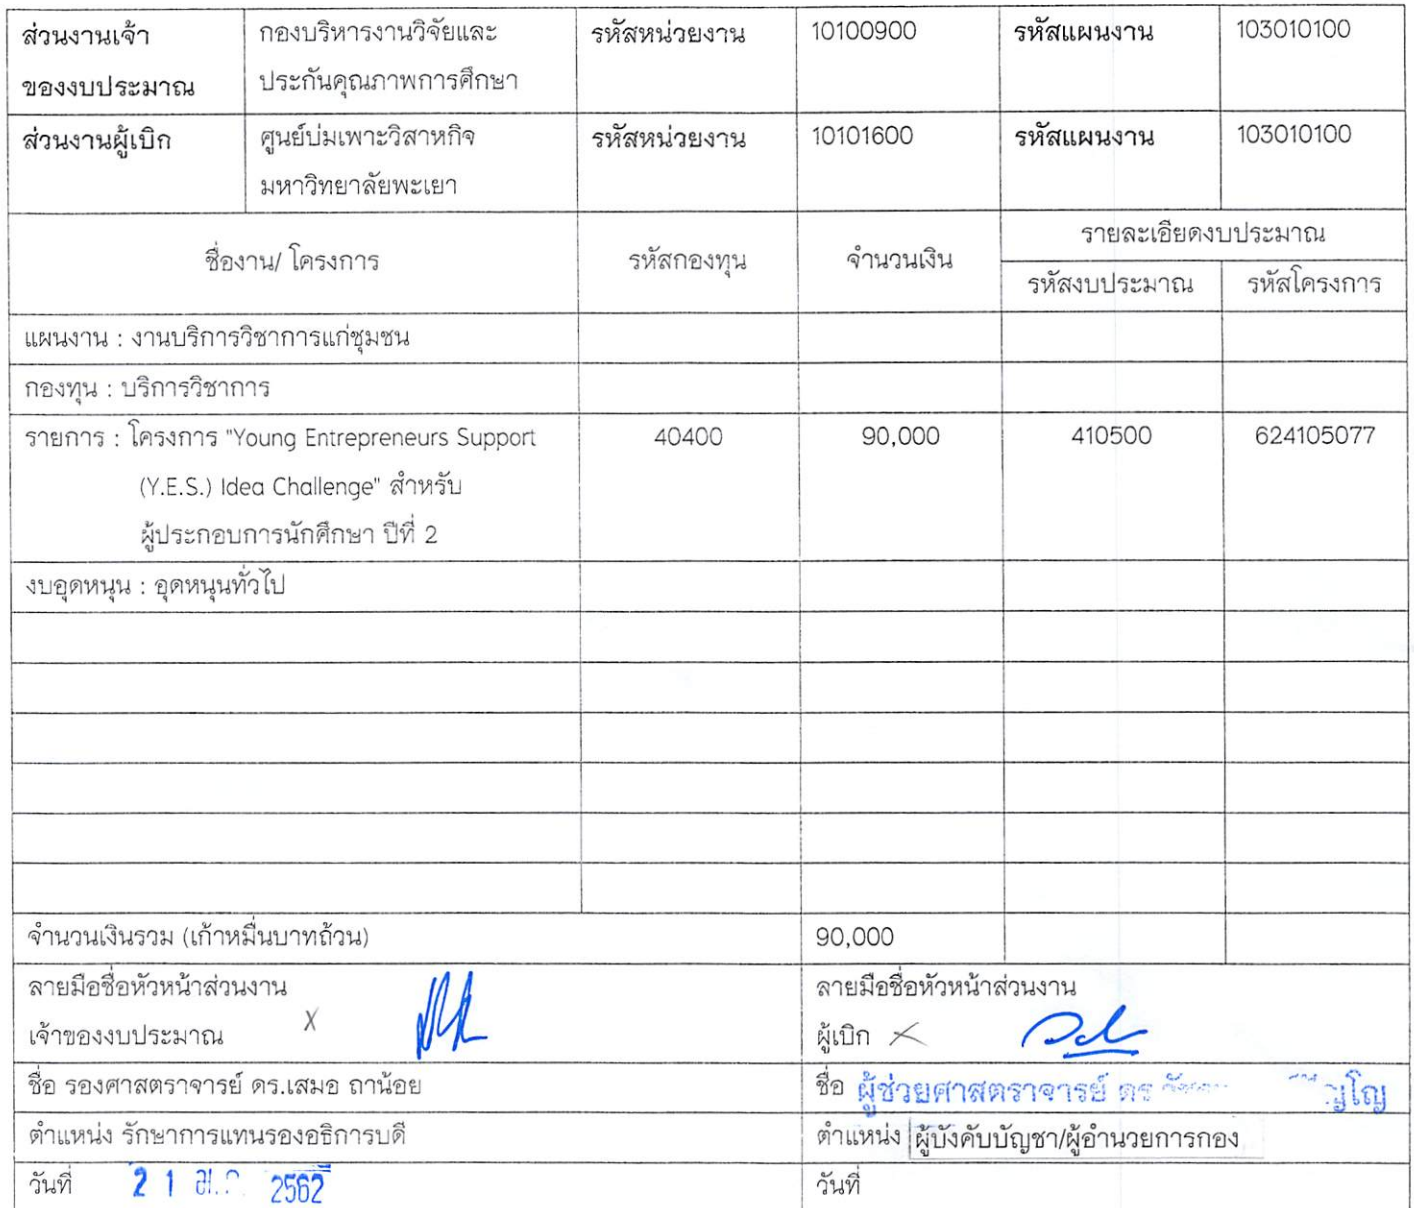 ส่วนงานเจ้า
ของงบประมาณ
กองบริหารงานวิจัยและ
ประกันคุณภาพการศึกษา
รหัสหน่วยงาน
10100900
รหัสแผนงาน
103010100
ส่วนงานผู้เบิก
ศูนย์บ่มเพาะวิสาหกิจ
มหาวิทยาลัยพะเยา
รหัสหน่วยงาน
10101600
รหัสแผนงาน
103010100
ชื่องาน/ โครงการ
รหัสกองทุน
จำนวนเงิน
รายละเอียดงบประมาณ
รหัสงบประมาณ
รหัสโครงการ
แผนงาน : งานบริการวิชาการแก่ชุมชน
กองทุน : บริการวิชาการ
รายการ : โครงการ "Young Entrepreneurs Support
(Y.E.S.) Idea Challenge" สำหรับ
ผู้ประกอบการนักศึกษา ปีที่ 2
40400
90,000
410500
624105077
งบอุดหนุน : อุดหนุนทั่วไป
จำนวนเงินรวม (เก้าหมื่นบาทถ้วน)
90,000
ลายมือชื่อหัวหน้าส่วนงาน
เจ้าของงบประมาณ
ลายมือชื่อหัวหน้าส่วนงาน
ผู้เบิก
ชื่อ รองศาสตราจารย์ ดร.เสมอ ถาน้อย
ชื่อ ผู้ช่วยศาสตราจารย์ ดร
ตำแหน่ง รักษาการแทนรองอธิการบดี
ตำแหน่ง ผู้บังคับบัญชา/ผู้อำนวยการกอง
วันที่ 21 2562
วันที่